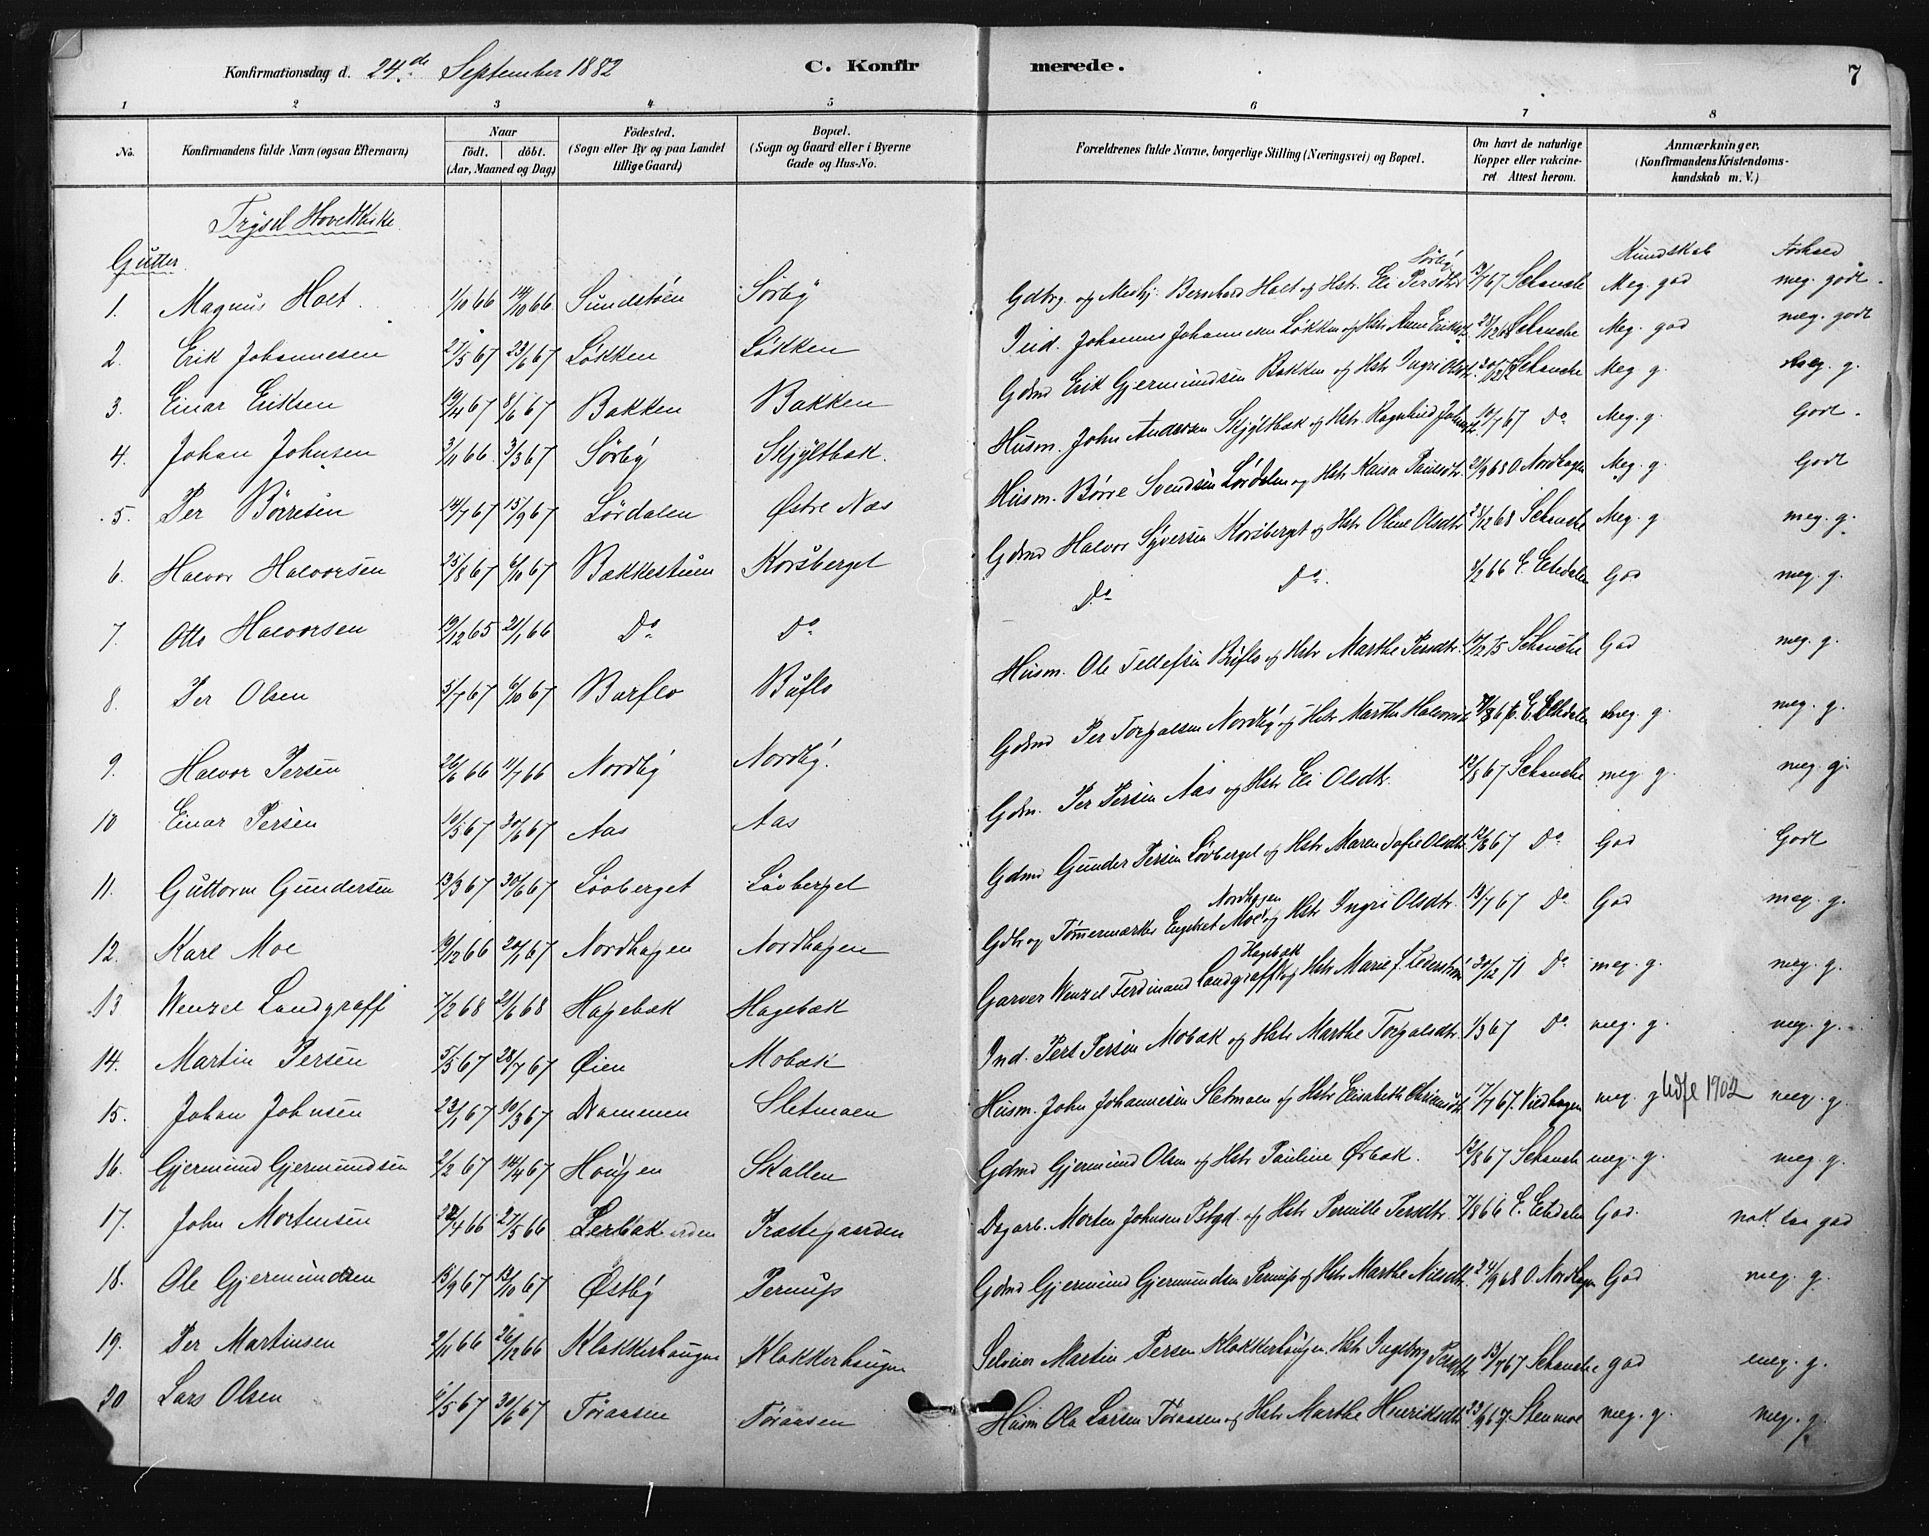 Konfirmationsdag d. 24de September 1882 C. Konfirmerede. 7
1 2 3 4 5 6 7 8
No. Konfirmandens fulde Navn (ogsaa Efternavn) Naar födt. döbt. (Aar, Maaned og Dag) Födested. (Sogn eller By og paa Landet tillige Gaard) Bopæl. (Sogn og Gaard eller i Byerne Gade og Hus-No. Forældrenes fulde Navne, borgerlige Stilling (Næringsvei) og Bopæl. Om havt de naturlige Kopper eller vakcineret Attest herom. Anmærkninger. (Konfirmandens Kristendomskundskab m. V.)
Trysil Hovedkirke
Gutter. Kundskab Forhold
1. Magnus Holt 1/10 66 14/10 66 Sundstöen Sörby Gdbrg. og Meshj. Bernhard Holt og Hstr. Eli Persdtr Sörby 67 Schanche Meg. god meg. godt.
2. Erik Johannesen 2/5 67 23/6 67 Løkken Løkken Ind. Johannes Johannesen Løkken og Hstr Anne Eriksd. Schanche Meg. god meg. godt
3. Einar Eriksen 19/4 67 8/6 67 Bakken Bakken Gdmd Erik Gjermundsen Bakken og Hstr Ingri Olsdtr. Schanche Meg. g. meg. g.
4. Johan Johnsen 3/11 66 3/3 67 Sörby Skjyltbak. Husm. John Andersen Skjyltbak og Hstr. Ragnhild 10/7 67 Do Meg. g. Godt.
5. Per Börresen 14/7 67 15/9 67 Lördalen Østre Nas Husm. Börre Svendsen Lördalen og Hstr Kaisa Paulsdtr. 21/9 68 O. Nordhagen Meg. g. Godt
6. Halvor Halvorsen 25/8 67 6/10 67 Bakkestuen Korsberget Gdmd Halvor Syversen Korsberget og Hstr Oline Olsdtr 12 68 Schanche Meg. g meg. g.
7. Otto Halvorsen 19/12 65 21/1 66 Do Do Do Do. 1/2 66 E. Etsdalen God meg. g.
8. Per Olsen 5/7 67 6/10 67 Burflo Buflo Husm. Ole Tellefsen Buflo og Hstr Marthe Persdtr. 17/12 75 Schanche God meg. g.
9. Halvor Persen 26/6 66 11/7 66 Nordby Nordby. Gdmd Per Torgalsen Nordby og Hstr Marthe Halvorsd. E. Etsdalen meg. g. meg. g.
10 Einar Persen 10/5 67 30/6 67 Aas Aas Gdm. Per Persen Aas og Hstr Eli Olsdtr. 12/8 67 Schanche meg. g. meg. g.
11. Guttorm Gundersen 13/3 67 30/6 67 Lövberget Lövberget Gdmd Gunder Persen Lövberget og Hstr Maren Sofie Olsdtr. 12/8 67 Do God Godt
12. Karl Moe 19/12 66 20/1 67 Nordhagen Nordhagen Gdbr og Tömmermærker Engebret Moe Nordhagen og Hstr Ingri Olsdtr. 13/7 67 Do God meg. g.
13 Wenzel Landgraff 7/2 68 21/6 68 Hagebak Hagebak Garver Wenzel Ferdinand Landgraff Hagebak og Hstr Marie J. Lederström 30/12 71 Do meg. g. meg. g.
14. Martin Persen 5/5 67 28/7 67 Øien Mobak Ind. Pert Persen Mobak og Hstr Marthe Torgalsdtr. 1/3 67 Do meg. g. meg. g.
15. Johan Johnsen 23/1 67 10/3 67 Drammen Sletmoen Husm. John Johannesen Sletmoen og Hstr Elisabeth 17/7 67. Viedhagen meg. g Udfl 1902 meg. g.
16. Gjermund Gjermundsen 2/2 67 14/4 67 Haugen Skallen Gdmd Gjermund Olsen og Hstr Pauline Ørbak. 12/8 67 Schanche meg. g. meg. g.
17. John Mortensen 22/4 66 27/5 66 Lerbak Prestegaarden Dagarb. Morten Johnsen Pstgd. og Hstr Pernille Persdtr. 7/8 66 E. Etsdalen God. nok saa god
18. Ole Gjermundsen 15/9 67 13/10 67 Østby Pernup Gdmd Gjermund Gjermundsen Pernup og Hstr Marthe Nilsdtr. 24/9 68 O. Nordhagen God meg. g.
19. Per Martinsen 2/11 66 26/12 66 Klokkerhaugen Klokkerhaugen Selveier Martin Persen Klokkerhaugen Hstr Ingeborg Persdtr 13/7 67 Schanche god meg. g.
20 Lars Olsen 1/5 67 30/6 67 Töraasen Töraasen Husm Ole Larsen Töraasen og Hstr Marthe Henriksdtr. 23/9 67. Stenmoe meg. g. meg. g.